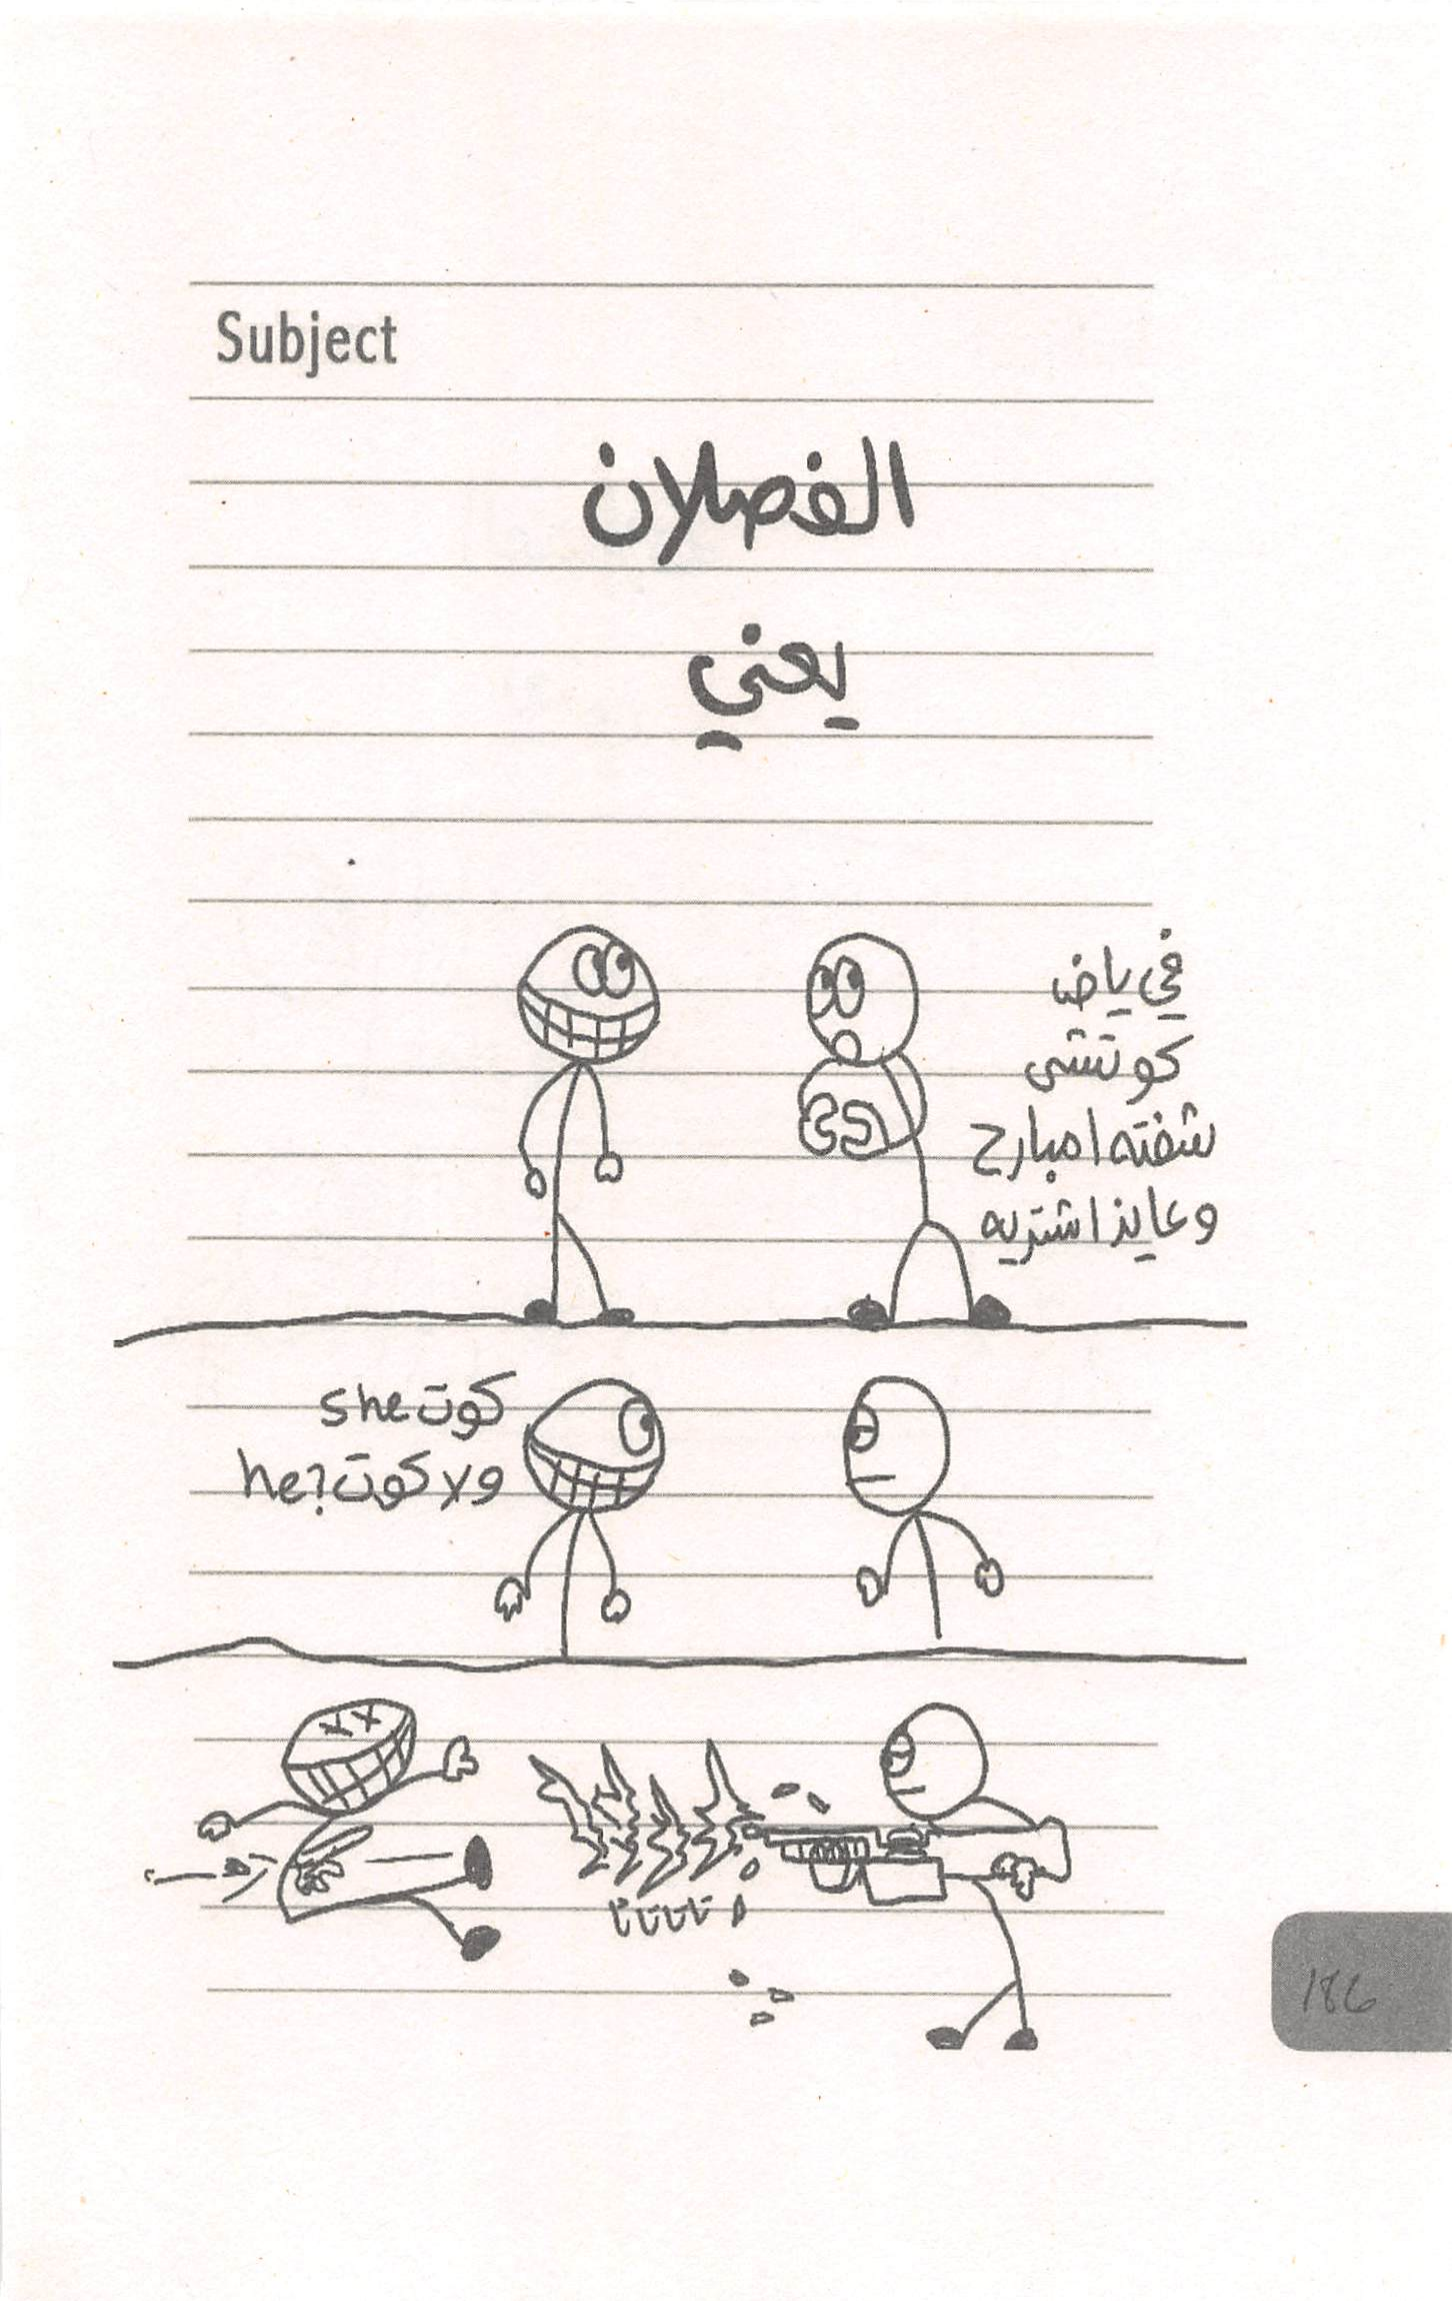 Subject
الفصلان
يعني
في ياض
كوتشى
شفته امبارح
وعايز اشتريه
كوت she
ولا كوت he؟
تاتاتاتا
186